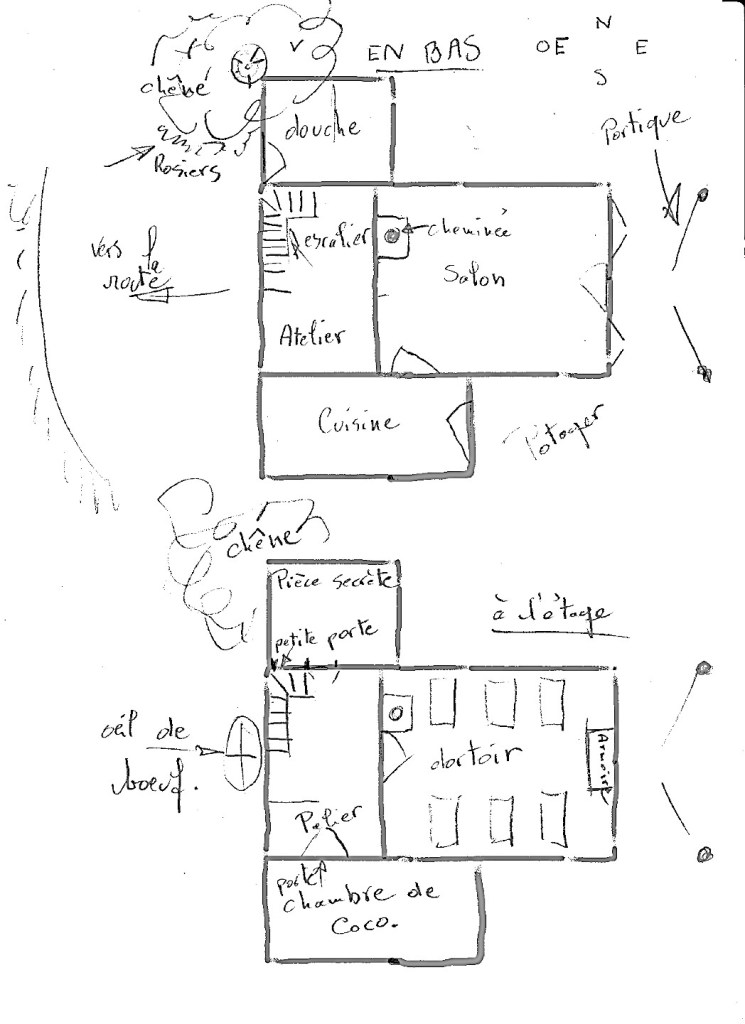 EN BAS
N
OE E
S
chêne
douche
Portique
Rosiers
escalier
cheminée
vers la
route
Salon
Atelier
Cuisine
Potager
chêne
Pièce secrète
à l'étage
petite porte
œil de
boeuf.
dortoir
Armoire
Palier
porte
chambre de
Coco.